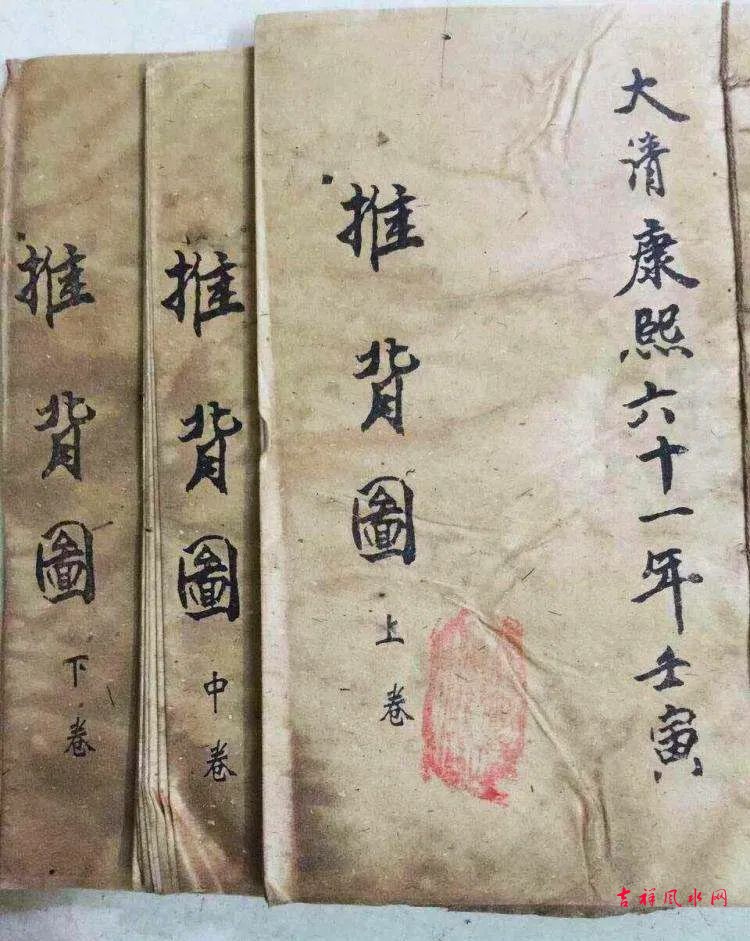 大清康熙六十一年壬寅
推背圖上卷
推背圖中卷
推背圖下卷
吉祥风水网